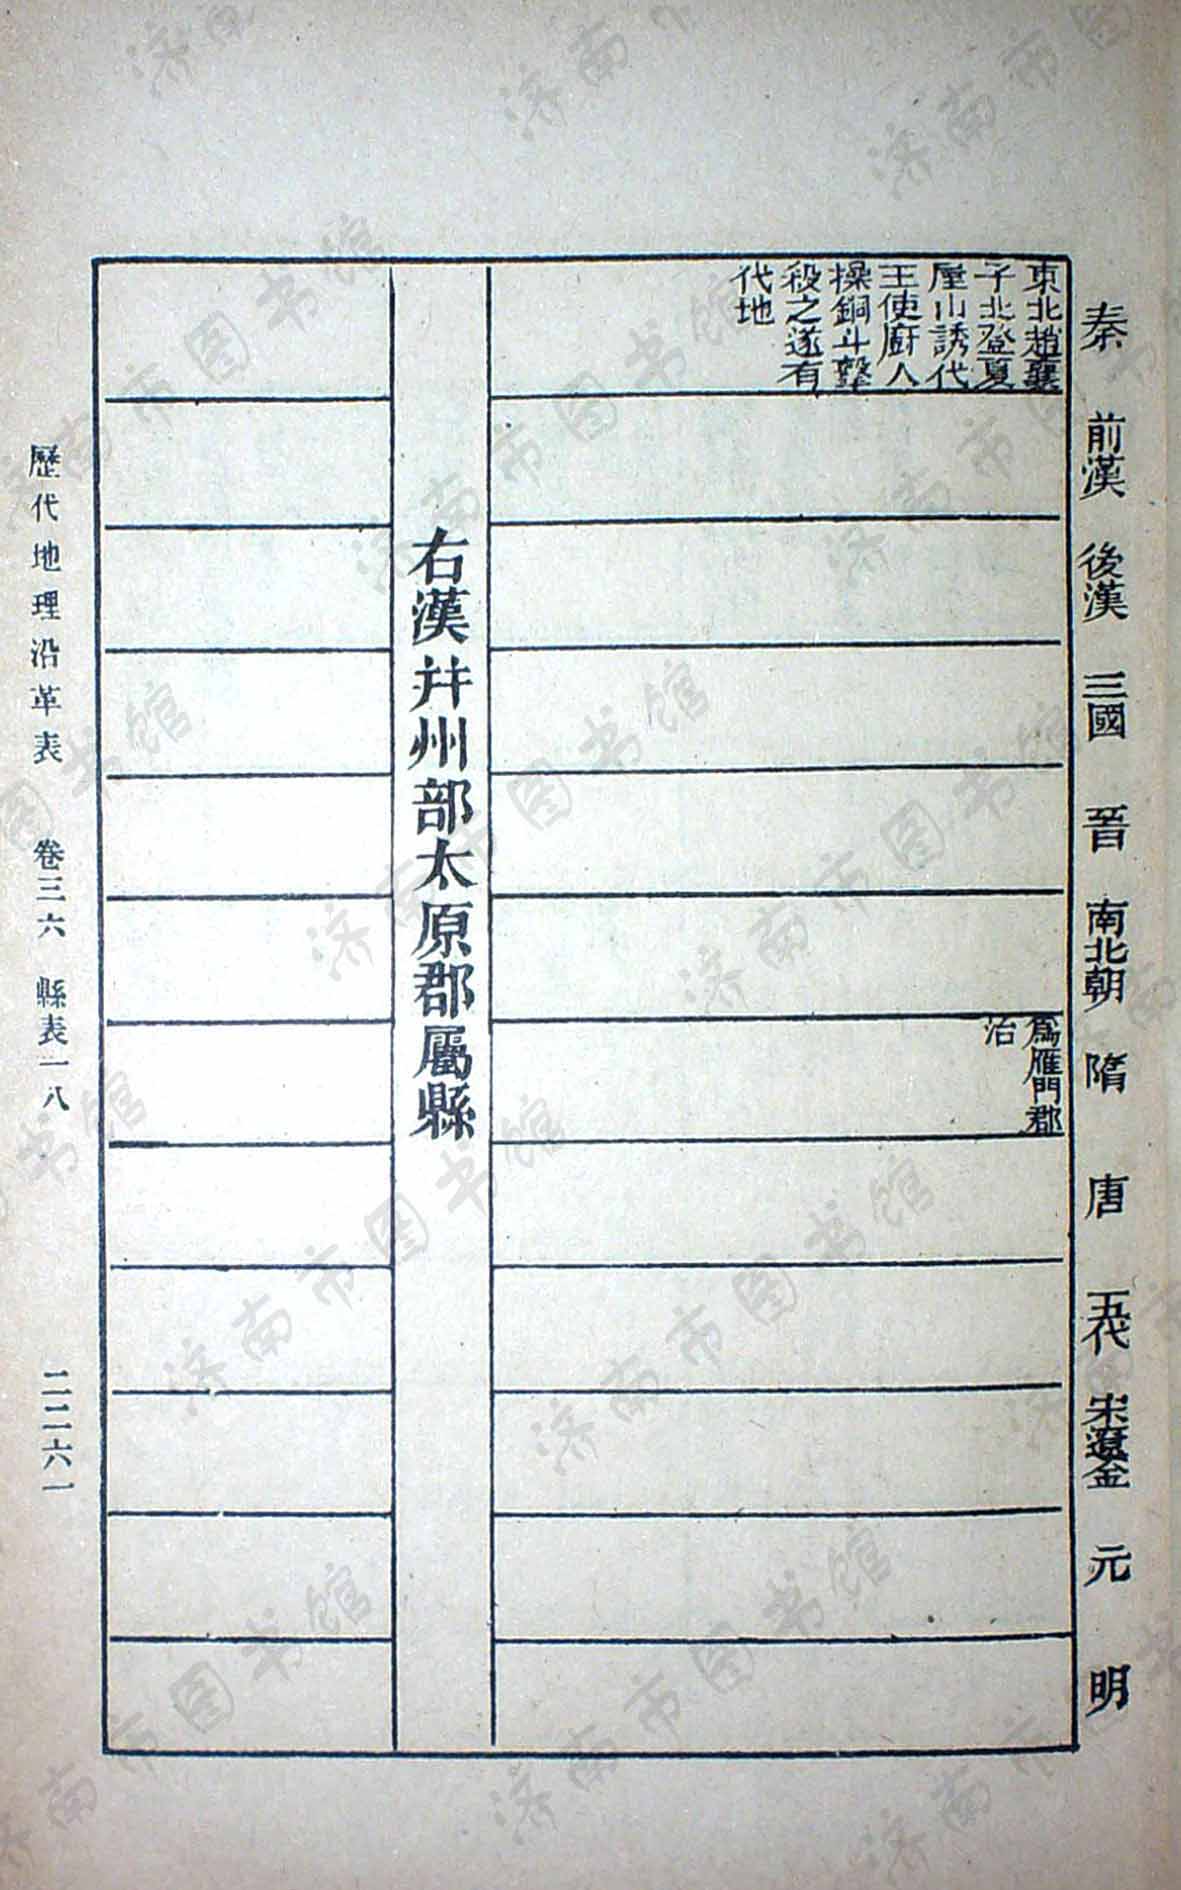 秦 前漢 後漢 三國 晉 南北朝 隋 唐 五代 宋遼金 元 明
東北趙襄
子北登夏
屋山誘代
王使廚人
操銅斗擊
殺之遂有
代地
爲雁門郡
治
右漢幷州部太原郡屬縣
歷代地理沿革表 卷三六 縣表一八 二二六一
济南市图书馆